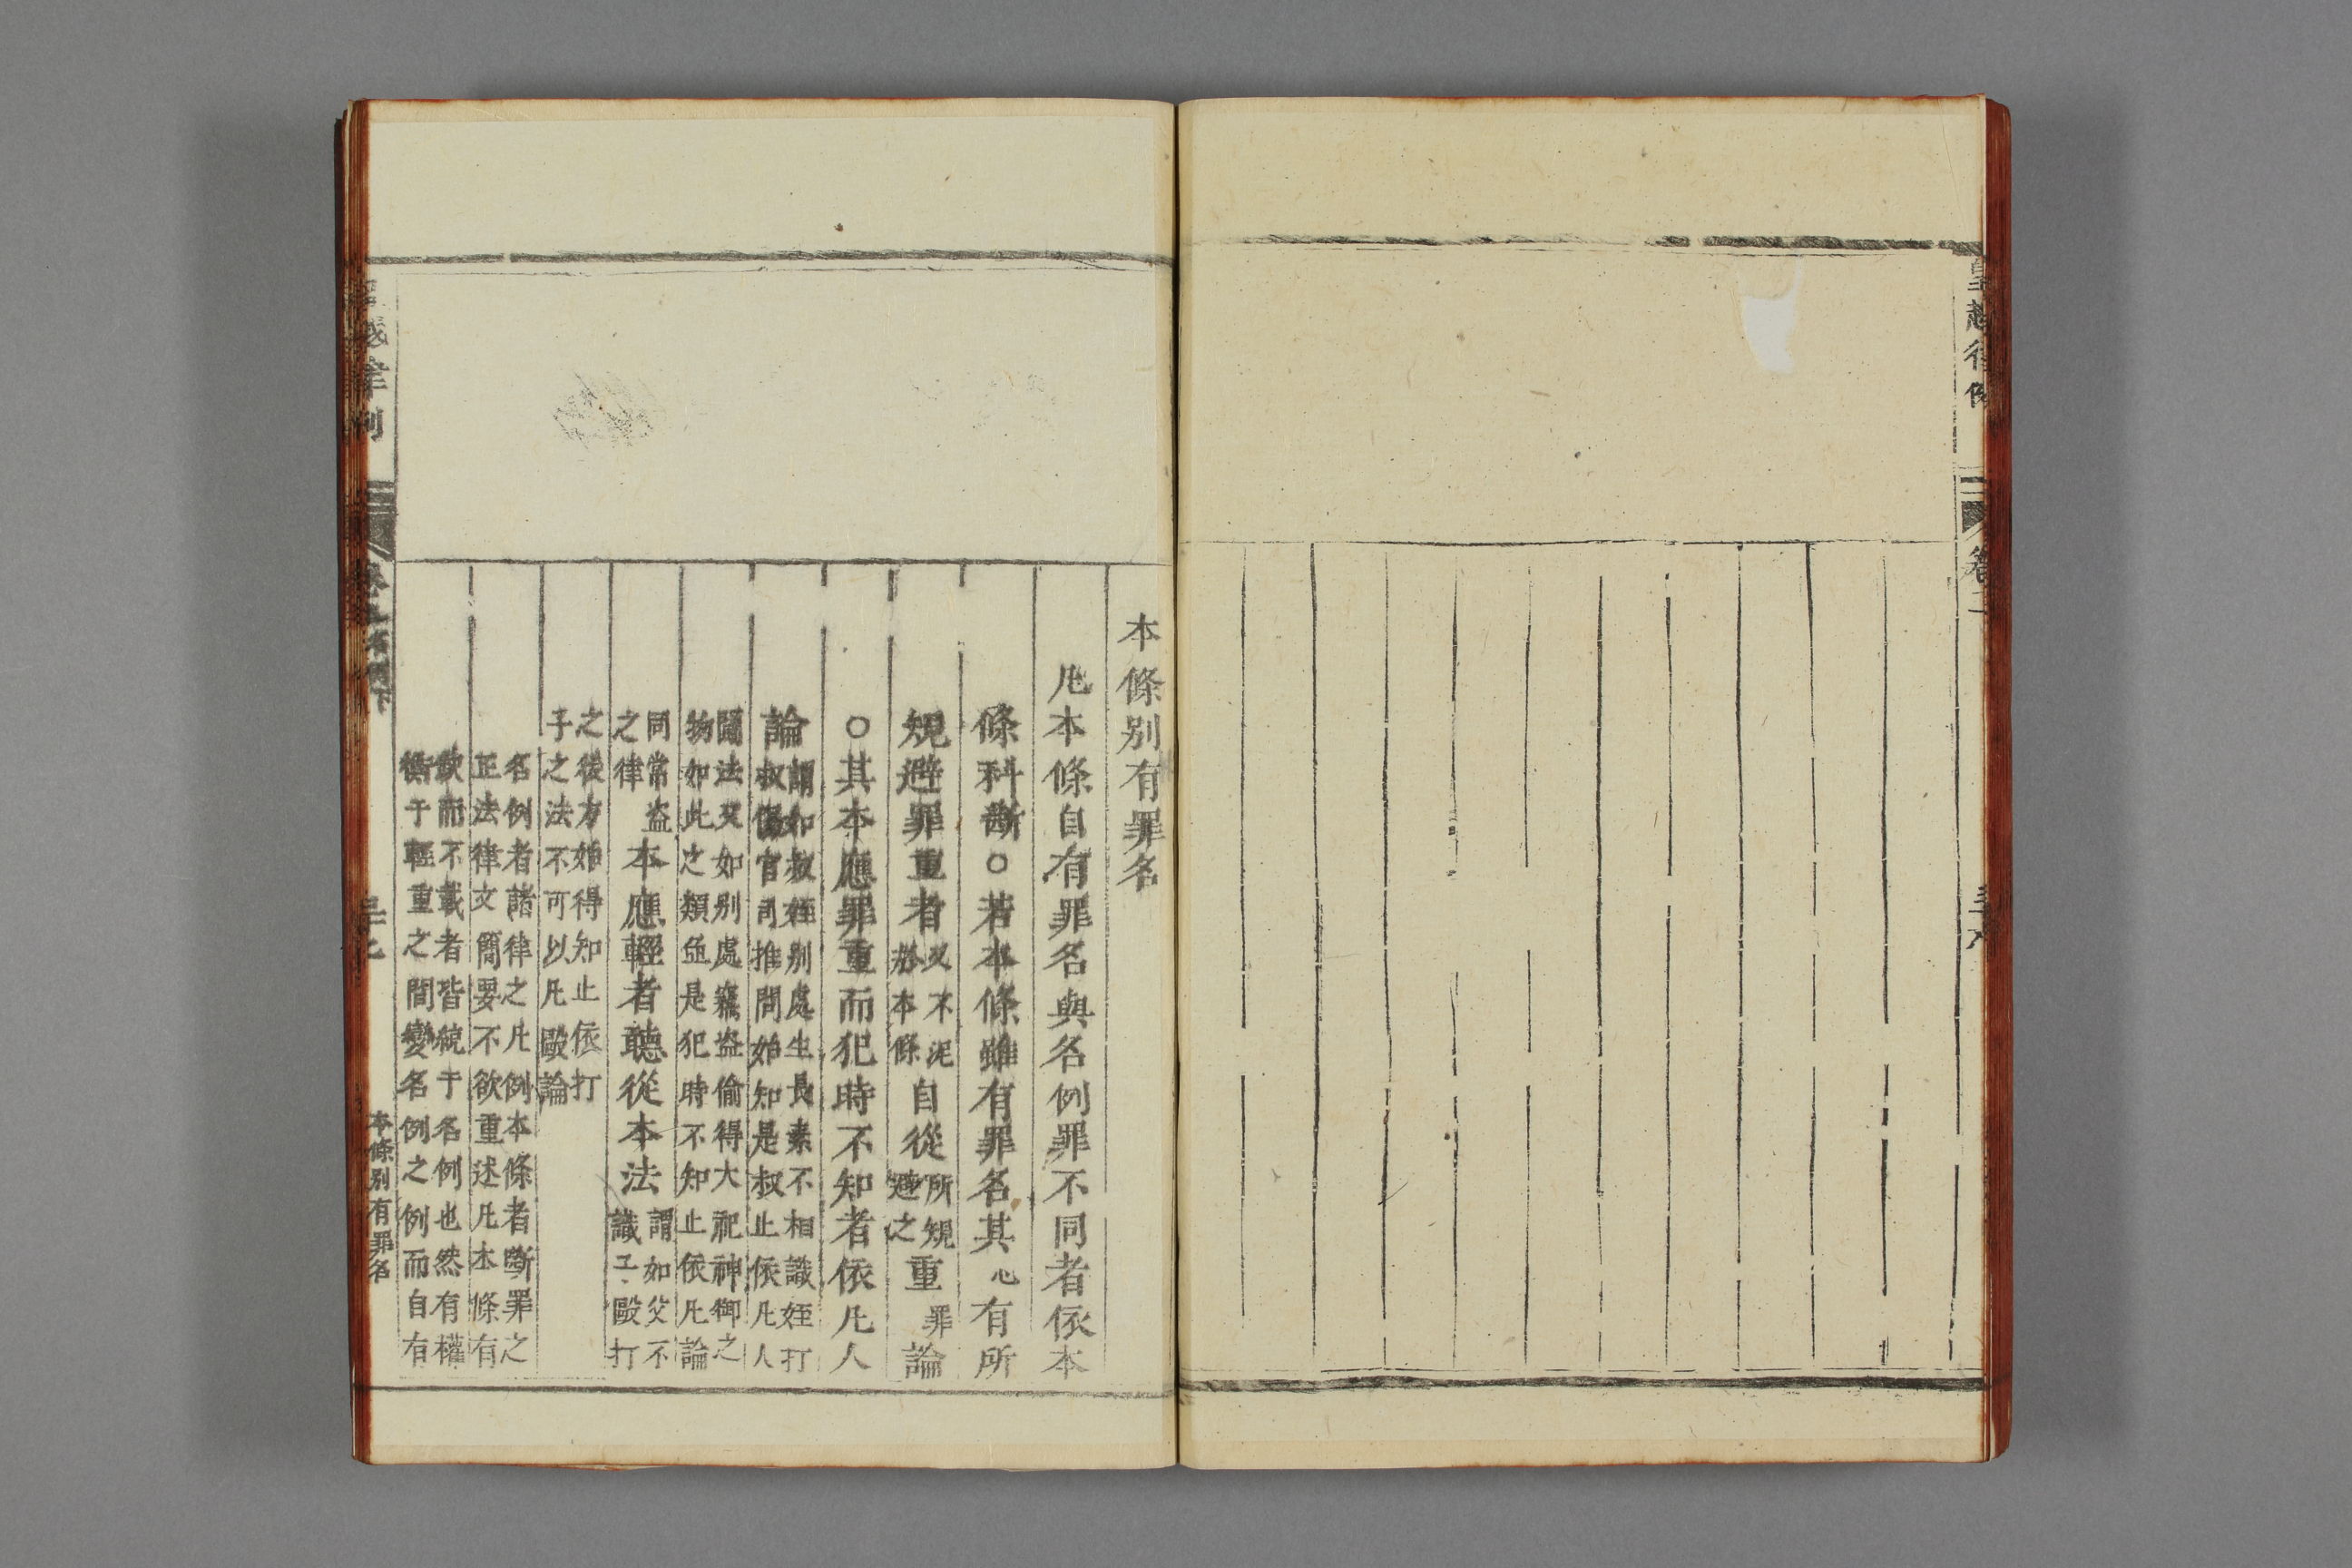 皇越律例
卷二
三十八
本條别有罪名
凡本條自有罪名與名例罪不同者依本
條科斷○若本條雖有罪名其心有所
規避罪重者又不泥於本條自從所規避之重罪論
○其本應罪重而犯時不知者依凡人
論謂如叔姪别處生長素不相識姪打
叔傷官司推問始知是叔止依凡人
鬪法又如别處竊盗偷得大祀神御之
物如此之類並是犯時不知止依凡論
同常盗
之律本應輕者聽從本法謂如父不
識子毆打
之後方始得知止依打
子之法不可以凡毆論
名例者諸律之凡例本條者斷罪之
正法律文簡要不欲重述凡本條有
歉而不載者皆統于名例也然有權
衡于輕重之間變名例之例而自有
越律例
名例下
本條别有罪名